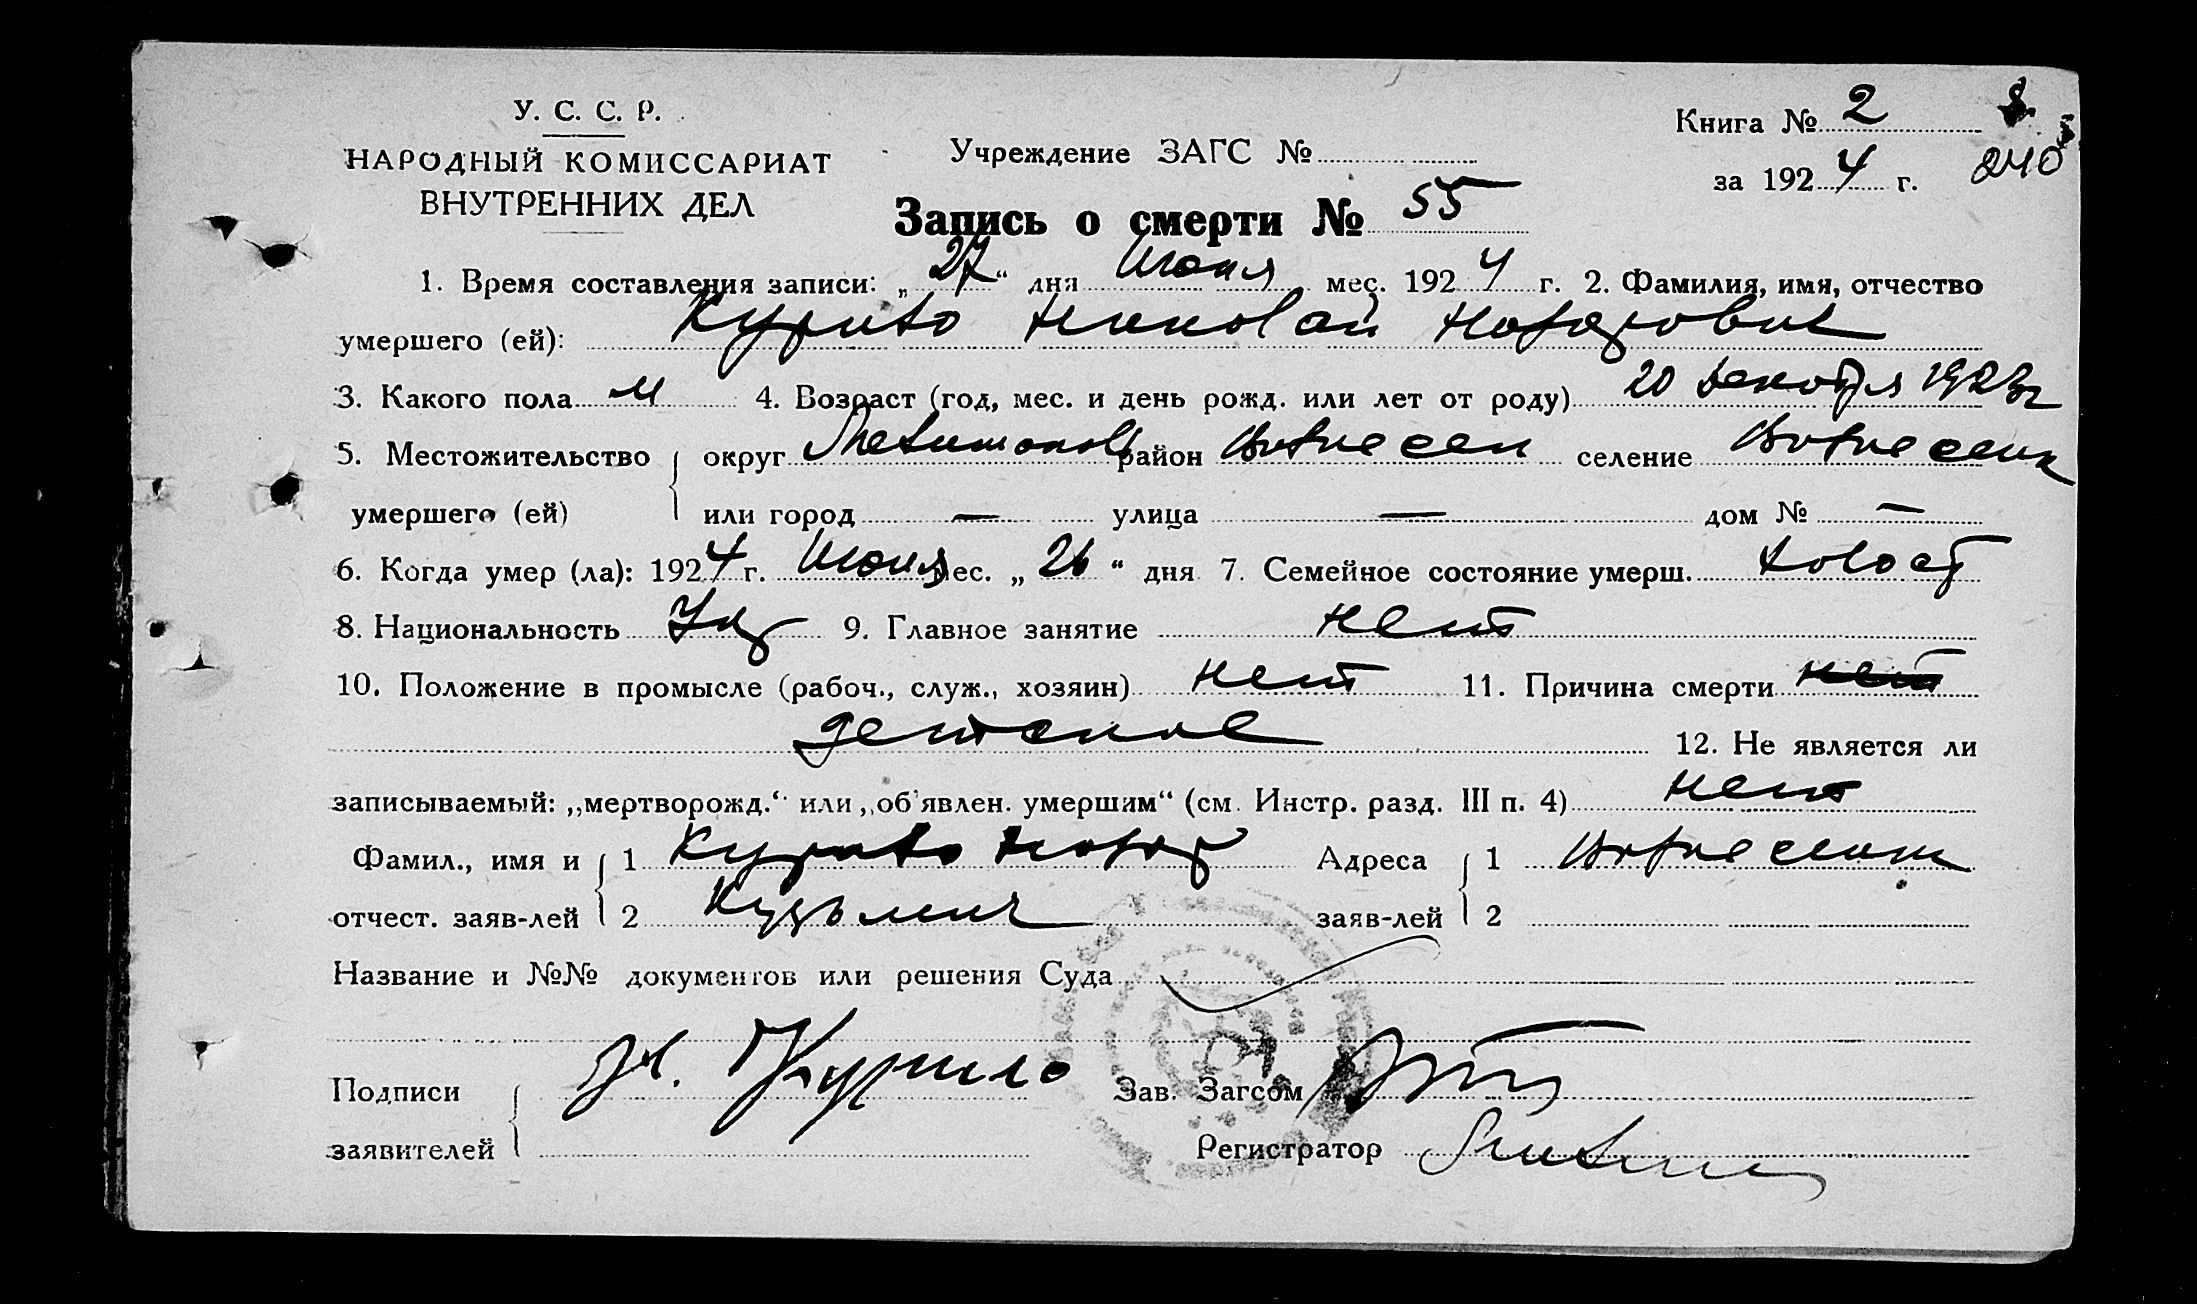 У. С. С. Р.
НАРОДНЫЙ КОМИССАРИАТ
ВНУТРЕННИХ ДЕЛ
Учреждение ЗАГС №
Книга № 2
за 1924 г. 240
Запись о смерти № 55
1. Время составления записи: „27“ дня Июня мес. 1924 г. 2. Фамилия, имя, отчество
умершего (ей): Курило Николай
3. Какого пола М 4. Возраст (год, мес. и день рожд. или лет от роду) 20 Декабря 1923 г
5. Местожительство округ район селение
умершего (ей) или город — улица — дом № —
6. Когда умер (ла): 1924 г. Июня мес. „26“ дня 7. Семейное состояние умерш. холост
8. Национальность Укр 9. Главное занятие нет
10. Положение в промысле (рабоч., служ., хозяин) нет 11. Причина смерти нет
детское 12. Не является ли
записываемый: „мертворожд.“ или „об'явлен. умершим“ (см. Инстр. разд. III п. 4) нет
Фамил., имя и 1 Курило Адреса 1
отчест. заяв-лей 2 Кузьмич заяв-лей 2
Название и №№ документов или решения Суда
Подписи Курило Зав. Загсом
заявителей Регистратор